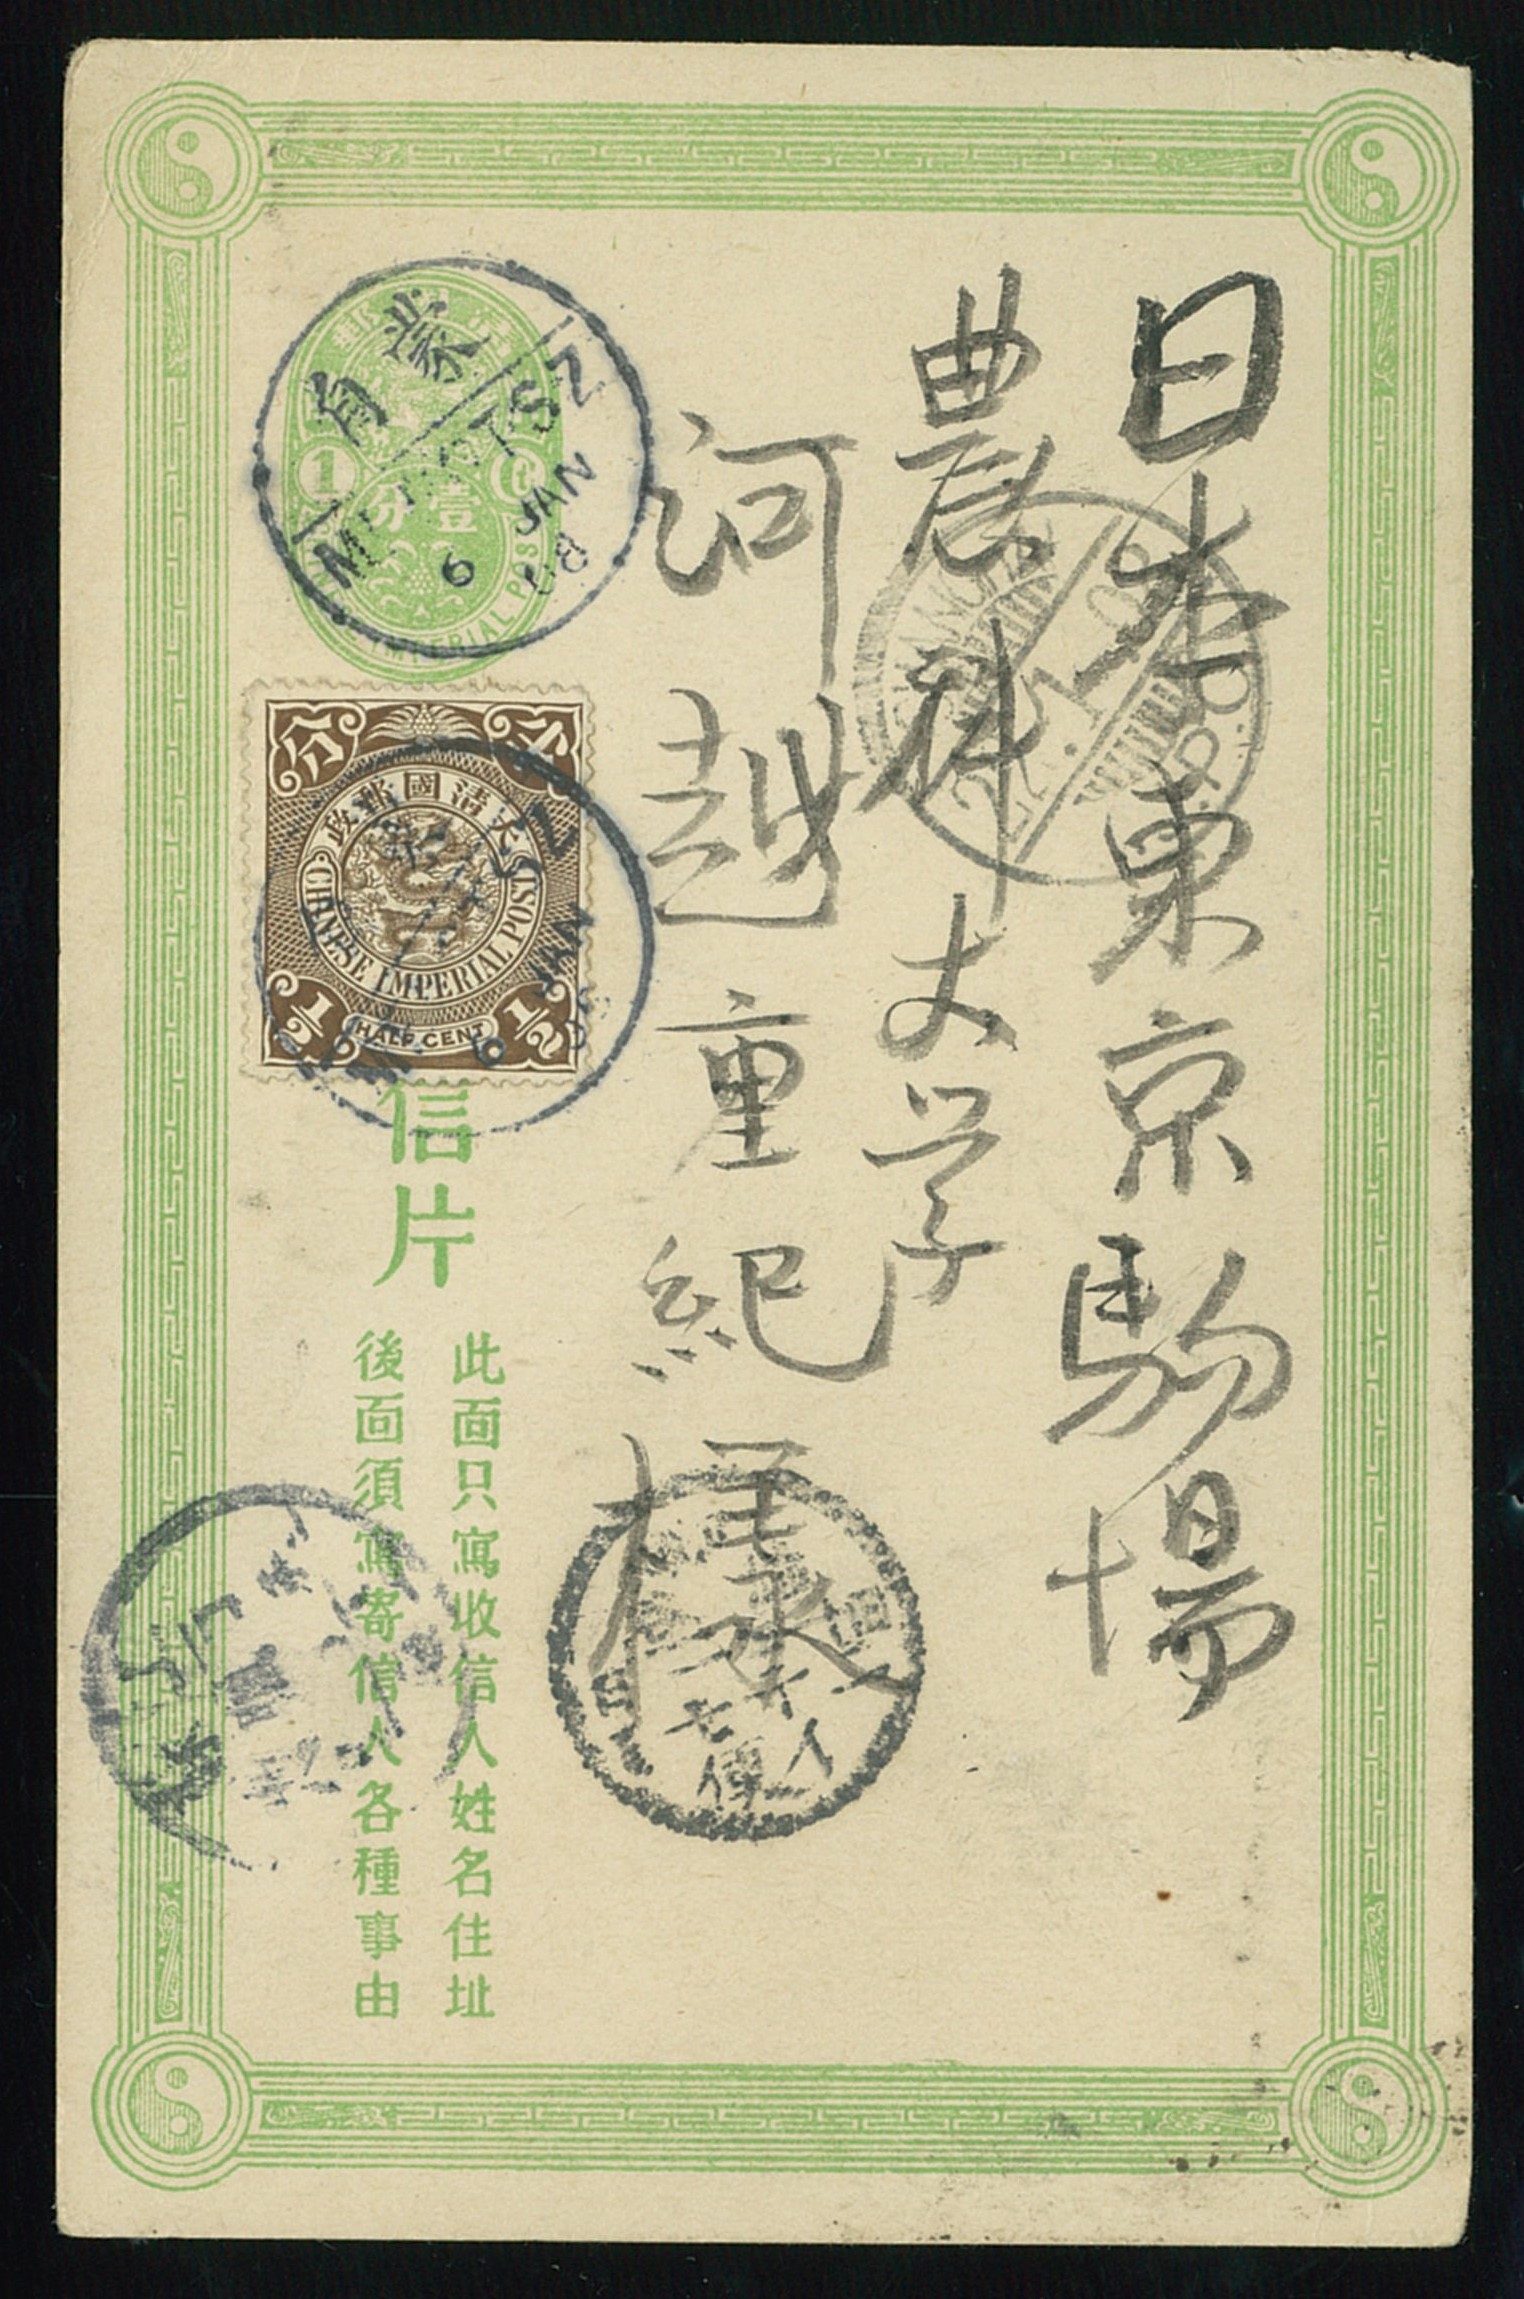 日本東京駒場
農科大学
河越重紀様
蒙自
MENGTSZ
6 JAN 08
分壹
1 C
IMPERIAL POS
大清國郵政
CHINESE IMPERIAL POST
HALF CENT
1/2 1/2
JAN
6
信片
此面只寫收信人姓名住址
後面須寫寄信人各種事由
I.J.P.O.